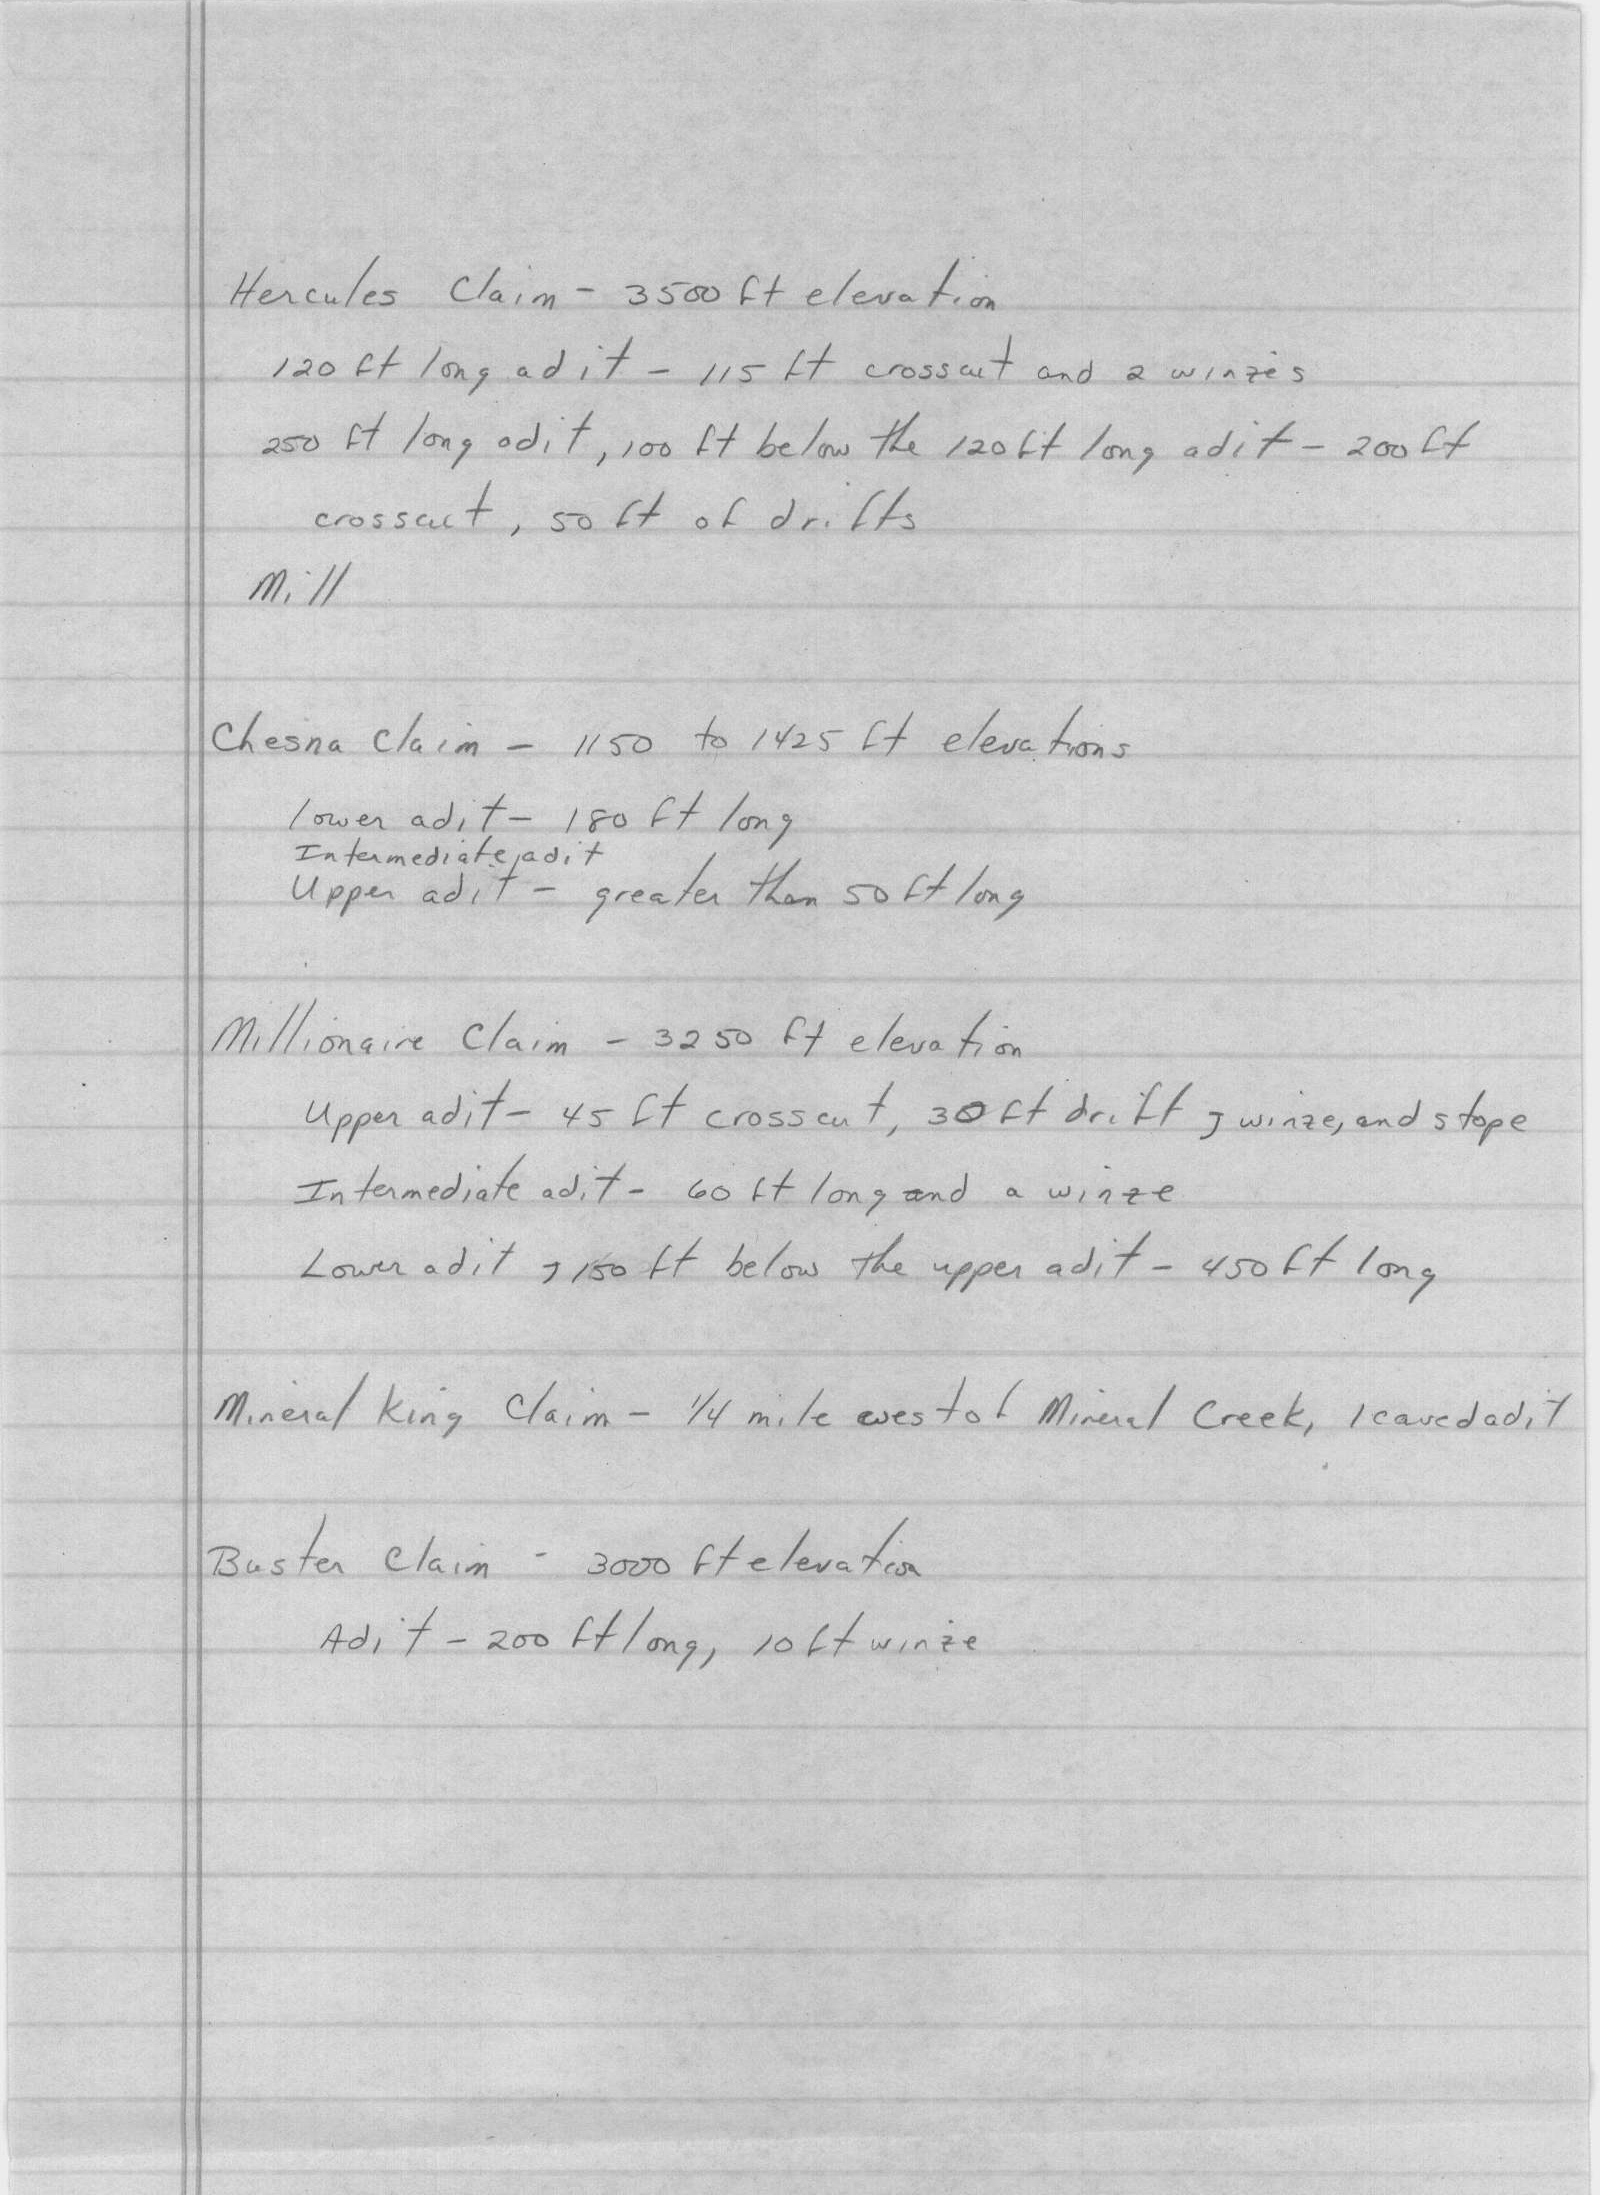 Hercules Claim - 3500 ft elevation
120 ft long adit - 115 ft crosscut and 2 winzes
250 ft long adit, 100 ft below the 120 ft long adit - 200 ft
crosscut, 50 ft of drifts
Mill
Chesna Claim - 1150 to 1425 ft elevations
lower adit - 180 ft long
Intermediate adit
Upper adit - greater than 50 ft long
Millionaire Claim - 3250 ft elevation
Upper adit - 45 ft crosscut, 30 ft drift, winze, and stope
Intermediate adit - 60 ft long and a winze
Lower adit, 150 ft below the upper adit - 450 ft long
Mineral King Claim - 1/4 mile west of Mineral Creek, 1 caved adit
Buster Claim - 3000 ft elevation
Adit - 200 ft long, 10 ft winze